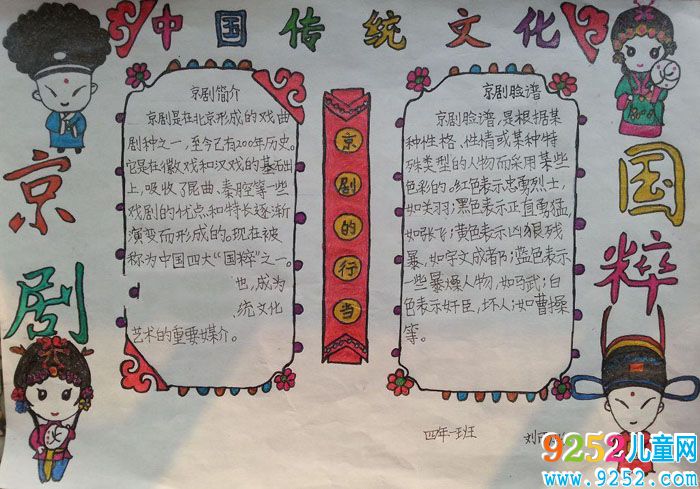 中国传统文化
京剧
国粹
京剧简介
京剧是在北京形成的戏曲
剧种之一，至今已有200年历史。
它是在徽戏和汉戏的基础
上，吸收了昆曲、秦腔等一些
戏剧的优点和特长逐渐
演变而形成的。现在被
称为中国四大“国粹”之一。
也，成为
统文化
艺术的重要媒介。
京剧的行当
京剧脸谱
京剧脸谱，是根据某
种性格、性情或某种特
殊类型的人物而采用某些
色彩的。红色表示忠勇烈士，
如关羽；黑色表示正直勇猛，
如张飞；黄色表示凶狠残
暴，如宇文成都；蓝色表示
一些暴燥人物，如马武；白
色表示奸臣，坏人；如曹操
等。
四年一班
刘
9252儿童网
www.9252.com